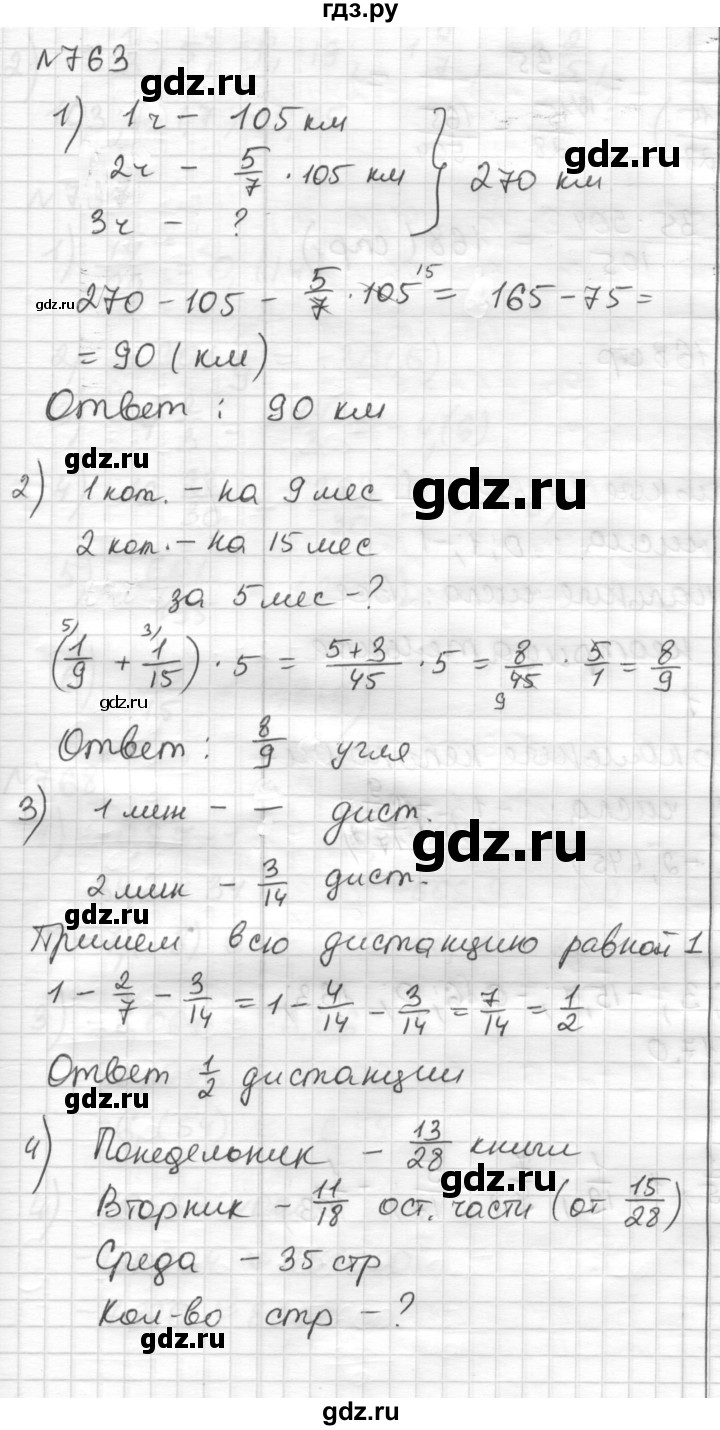 гдз.ру
№763
gdz.ru
1) 1ч – 105 км
gdz.ru
2ч – 5/7 · 105 км } 270 км
3ч – ?
gdz.ru
270 – 105 – 5/7 · 105 15 = 165 – 75 =
= 90 (км)
Ответ : 90 км
gdz.ru
2) 1 кот. – на 9 мес
gdz.ru
2 кот. – на 15 мес
за 5 мес – ?
(5) 1/9 + 3) 1/15) · 5 = 5+3/45 · 5 = 8/45 9 · 5/1 = 8/9
gdz.ru
Ответ : 8/9 угля
3) 1 мин – – дист.
gdz.ru
2 мин – 3/14 дист.
gdz.ru
Примем всю дистанцию равной 1
1 – 2/7 – 3/14 = 1 – 4/14 – 3/14 = 7/14 = 1/2
Ответ 1/2 дистанции
gdz.ru
4) Понедельник – 13/28 книги
gdz.ru
Вторник – 11/18 ост. части (от 15/28)
Среда – 35 стр
Кол-во стр – ?
gdz.ru
gdz.ru